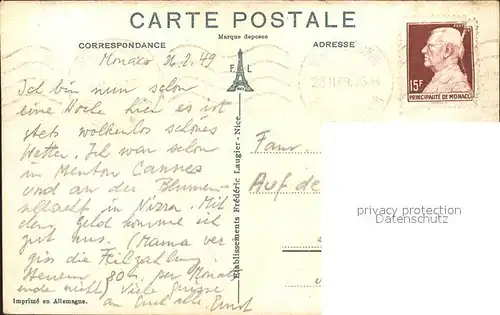 CARTE POSTALE
Marque deposée
CORRESPONDANCE
ADRESSE
Monaco 26.2.49
Ich bin nun schon
eine Woche hier es ist
stets wolkenlos schönes
Wetter. Ich war schon
in Menton Cannes
und an der Blumen-
schlacht in Nizza. Mit
dem Geld komme ich
gut aus. (Mama ver
giss die Teilzahlung
Steuern 80.- per Monats
ende nicht) Viele Grüsse
an Euch alle. Ernst
Imprimé en Allemagne.
Etablissements Frédéric Laugier - Nice
F. L
15F
PRINCIPAUTÉ DE MONACO
Fam.
Auf de
privacy protection
Datenschutz